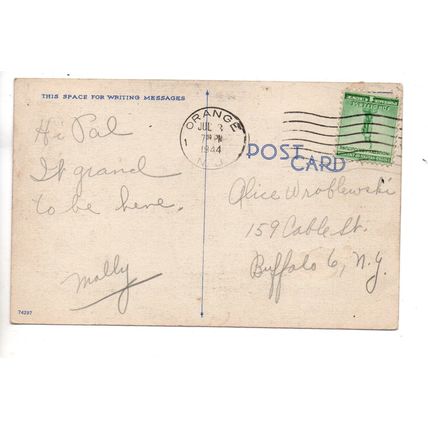 THIS SPACE FOR WRITING MESSAGES
Hi Pal
It grand
to be here.
Molly
74297
ORANGE
JUL 3
1944
N.J.
1
POST CARD
Alice Wroblewski
159 Cable St.
Buffalo 6, N.Y.